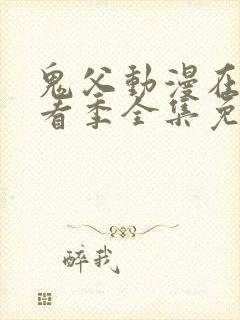 鬼父動漫在
看季全集免
醉我